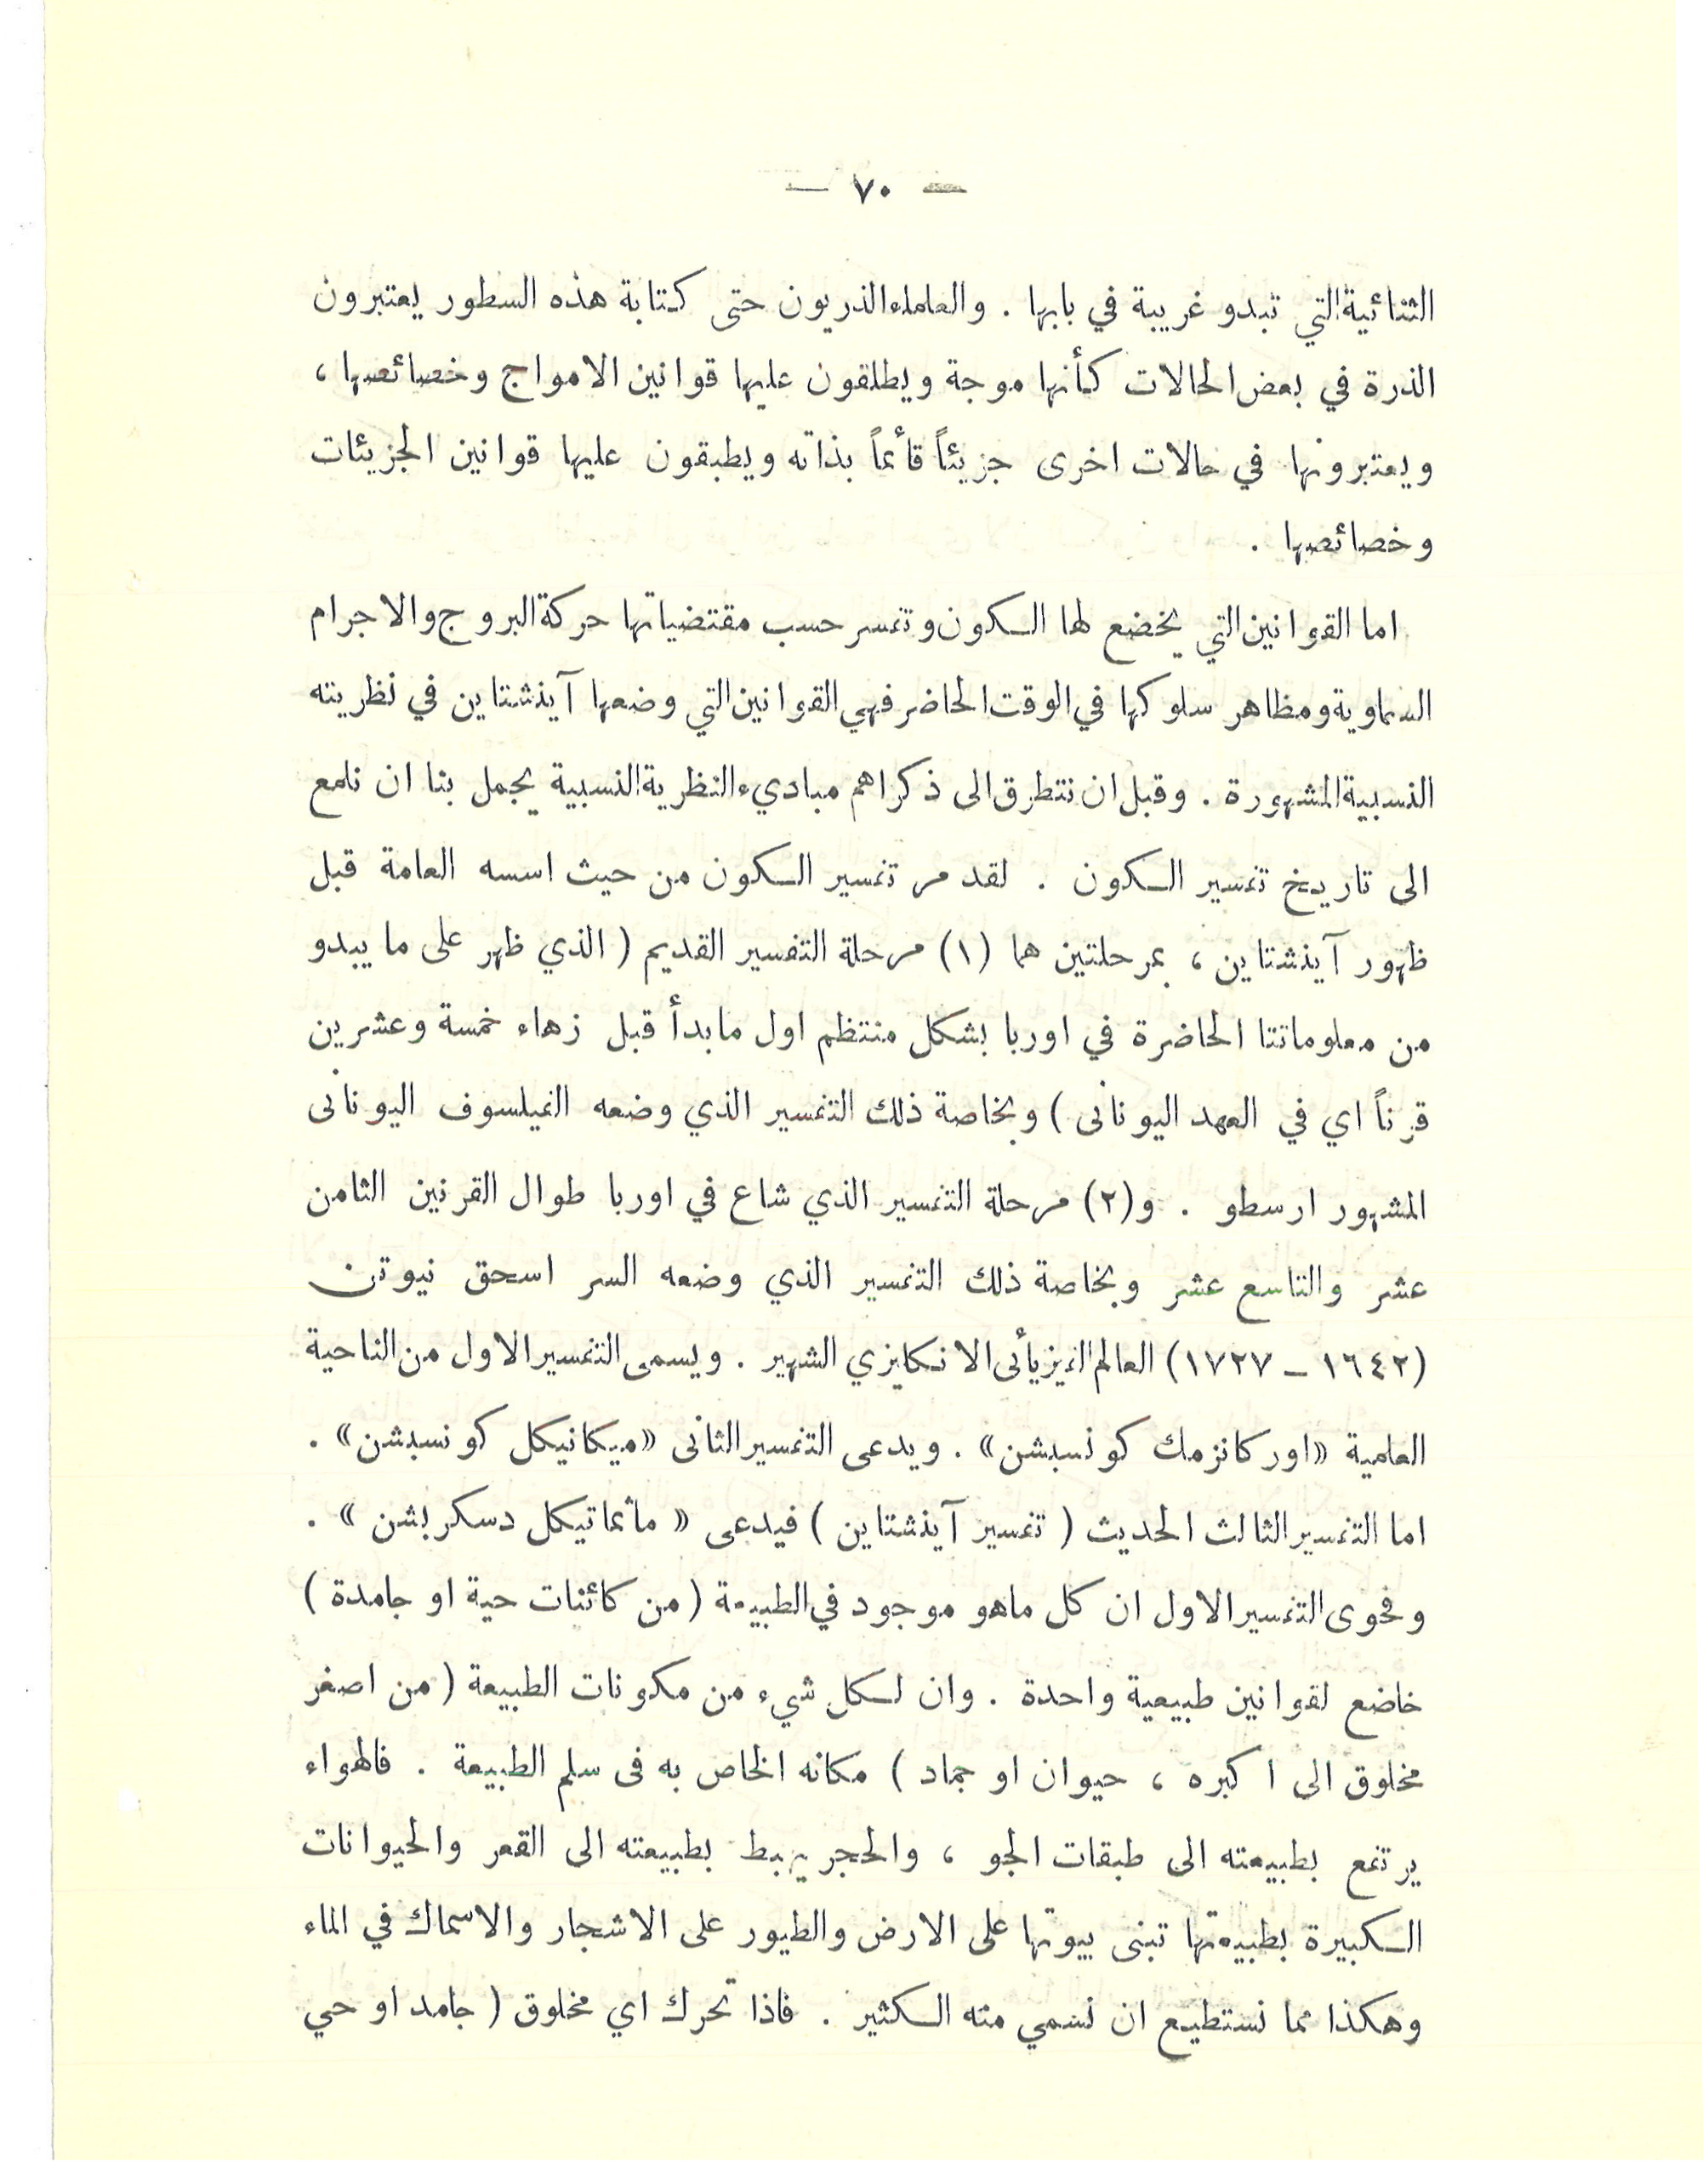 — ٧٠ —
الثنائية التي تبدو غريبة في بابها . والعلماء الذريون حتى كتابة هذه السطور يعتبرون
الذرة في بعض الحالات كأنها موجة ويطلقون عليها قوانين الامواج وخصائصها ،
ويعتبرونها في حالات اخرى جزيئاً قائماً بذاته ويطبقون عليها قوانين الجزيئات
وخصائصها .
اما القوانين التي يخضع لها الكون وتفسر حسب مقتضياتها حركة البروج والاجرام
السماوية ومظاهر سلوكها في الوقت الحاضر فهي القوانين التي وضعها آينشتاين في نظريته
النسبية المشهورة . وقبل ان نتطرق الى ذكر اهم مباديء النظرية النسبية يجمل بنا ان نلمع
الى تاريخ تفسير الكون . لقد مر تفسير الكون من حيث اسسه العامة قبل
ظهور آينشتاين ، بمرحلتين هما (١) مرحلة التفسير القديم ( الذي ظهر على ما يبدو
من معلوماتنا الحاضرة في اوربا بشكل منتظم اول ما بدأ قبل زهاء خمسة وعشرين
قرناً اي في العهد اليونانى ) وبخاصة ذلك التفسير الذي وضعه الفيلسوف اليونانى
المشهور ارسطو . و(٢) مرحلة التفسير الذي شاع في اوربا طوال القرنين الثامن
عشر والتاسع عشر وبخاصة ذلك التفسير الذي وضعه السر اسحق نيوتن
(١٦٤٢ – ١٧٢٧) العالم الفيزيأئى الانكليزي الشهير . ويسمى التفسير الاول من الناحية
العلمية «اوركانزمك كونسبشن» . ويدعى التفسير الثانى «ميكانيكل كونسبشن» .
اما التفسير الثالث الحديث ( تفسير آينشتاين ) فيدعى « ماثماتيكل دسكربشن » .
وفحوى التفسير الاول ان كل ماهو موجود في الطبيعة ( من كائنات حية او جامدة )
خاضع لقوانين طبيعية واحدة . وان لكل شيء من مكونات الطبيعة ( من اصغر
مخلوق الى اكبره ، حيوان او جماد ) مكانه الخاص به فى سلم الطبيعة . فالهواء
يرتفع بطبيعته الى طبقات الجو ، والحجر يهبط بطبيعته الى القعر والحيوانات
الكبيرة بطبيعتها تبنى بيوتها على الارض والطيور على الاشجار والاسماك في الماء
وهكذا مما نستطيع ان نسمي منه الكثير . فاذا تحرك اي مخلوق ( جامد او حي